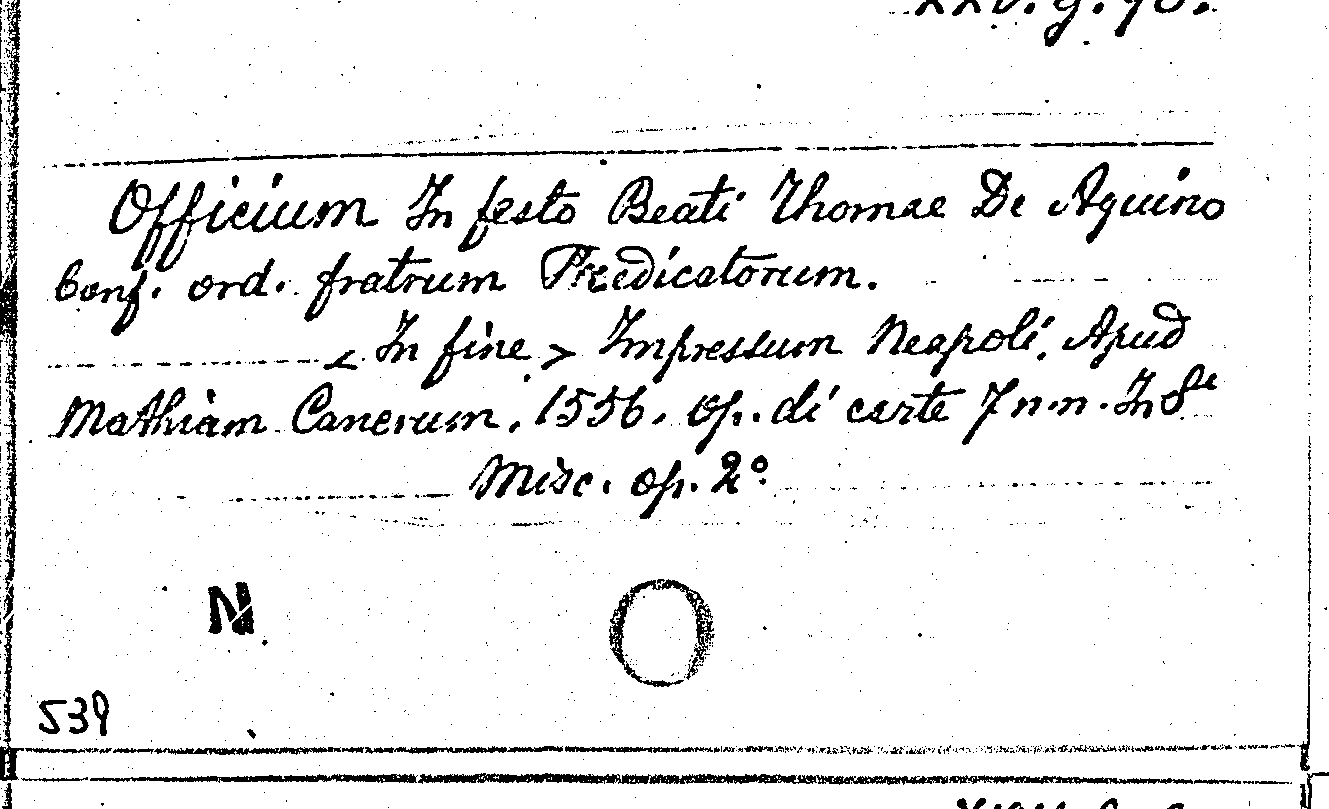 Officium In festo Beati Thomae De Aquino
Conf. ord. fratrum Praedicatorum.
< In fine > Impressum Neapoli. Apud
Mathiam Cancrum. 1556. op. di carte 7 n.n. In 8°
Misc. op. 2°
N
539